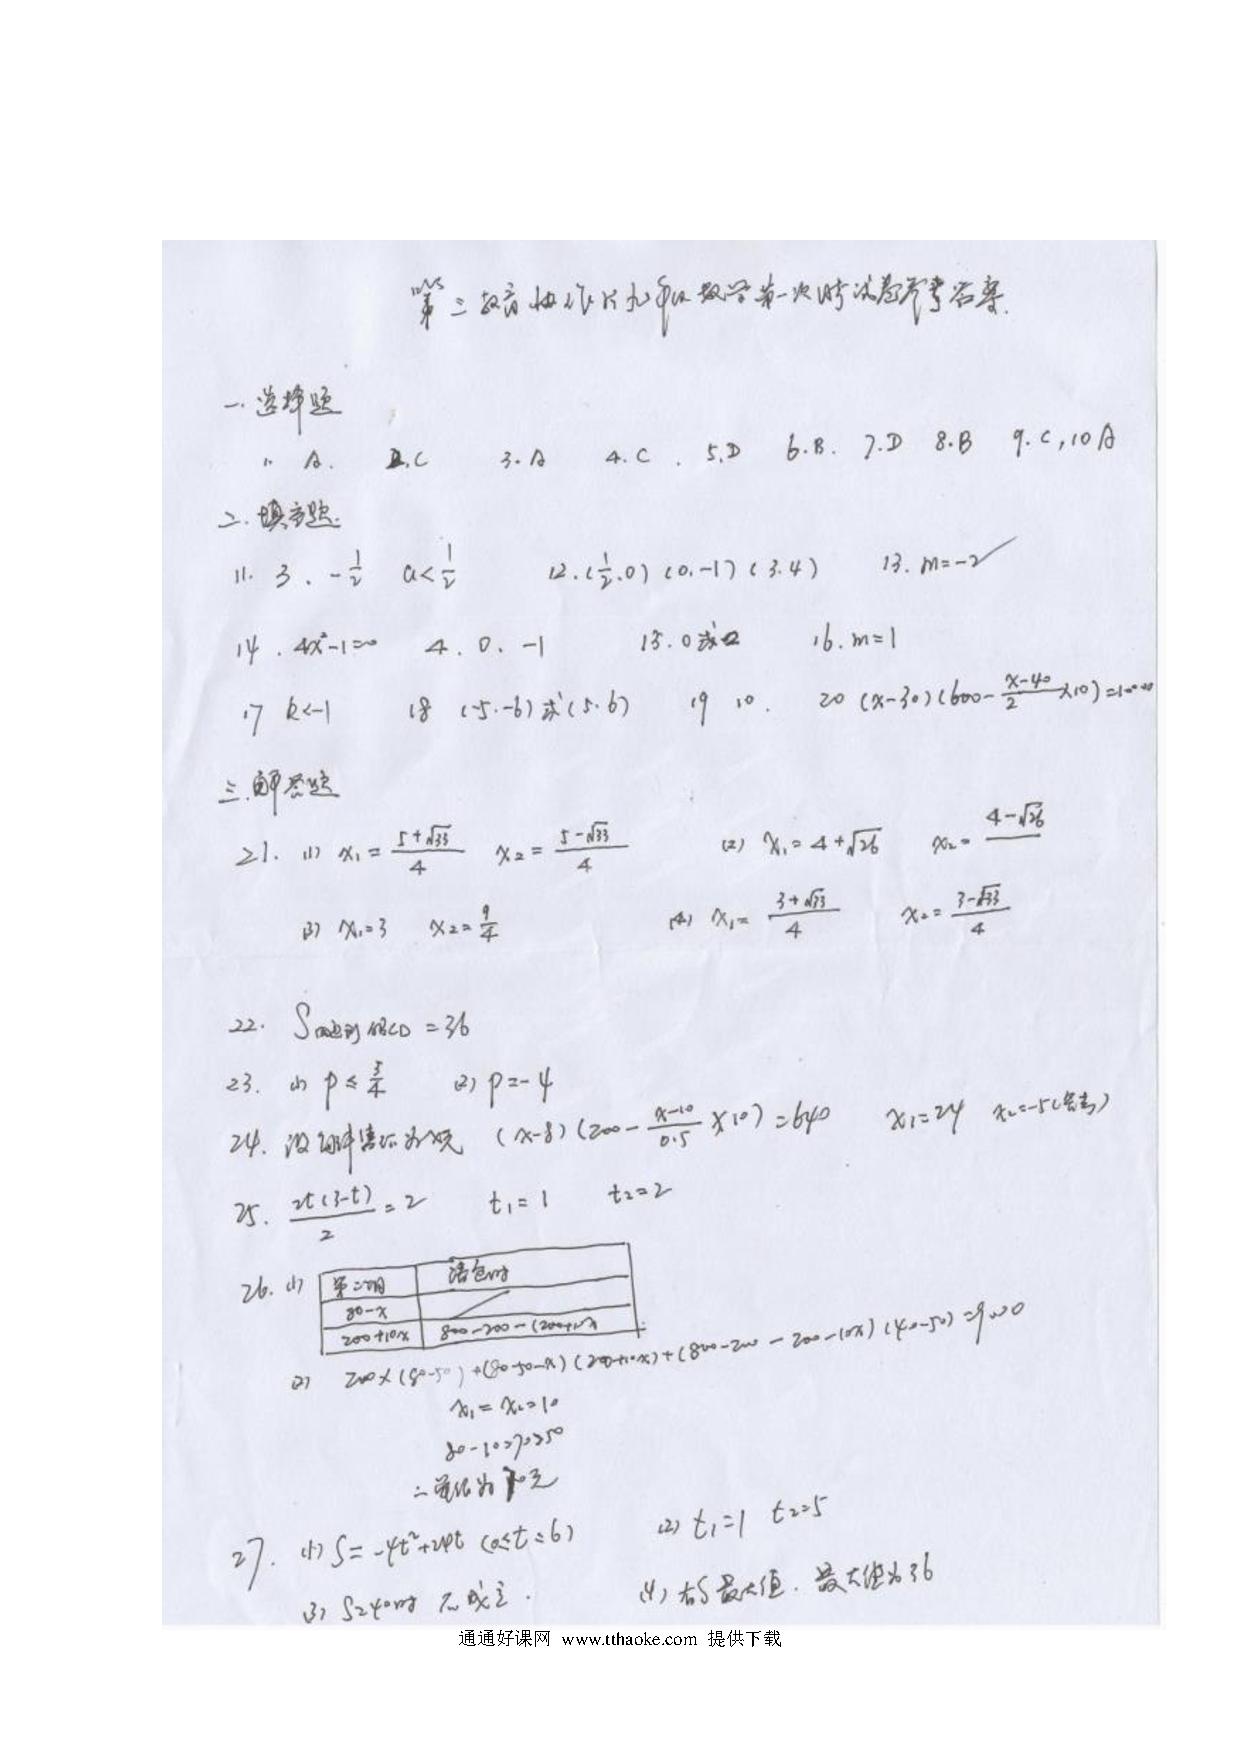 第二教育协作片九年级数学第一次月考试卷参考答案.
一. 选择题
1. A. 2. C 3. A 4. C . 5. D 6. B. 7. D 8. B 9. C , 10 A
二. 填空题.
11. 3 、 -1/2 a<1/2 12. (1/2, 0) (0, -1) (3, 4) 13. m=-2
14. 4x²-1=0 4 、 0 、 -1 15. 0或2 16. m=1
17 k<-1 18 (-5, -6) 或 (5, 6) 19 10 . 20 (x-30)(600-(x-40)/2×10)=10000
三. 解答题
21. (1) x₁=(5+√33)/4 x₂=(5-√33)/4 (2) x₁=4+√26 x₂=4-√26
(3) x₁=3 x₂=9/4 (4) x₁=(3+√33)/4 x₂=(3-√33)/4
22. S四边形ABCD=36
23. (1) p≤5/4 (2) p=-4
24. 设每件售价为x元 (x-8)(200-(x-10)/0.5×10)=640 x₁=24
25. 2t(3-t)/2=2 t₁=1 t₂=2
26. (1) 第二个月 清仓时
80-x
200+10x 800-200-(200+10x
(2) 200×(80-50)+(80-50-x)(200+10x)+(800-200-200-10x)(40-50)=9000
x₁=x₂=10
80-10=70>50
∴ 单价为70元
27. (1) S=-4t²+24t (0≤t≤6) (2) t₁=1 t₂=5
(3) S=40时 不成立 . (4) 有S最大值 . 最大值为36
通通好课网 www.tthaoke.com 提供下载